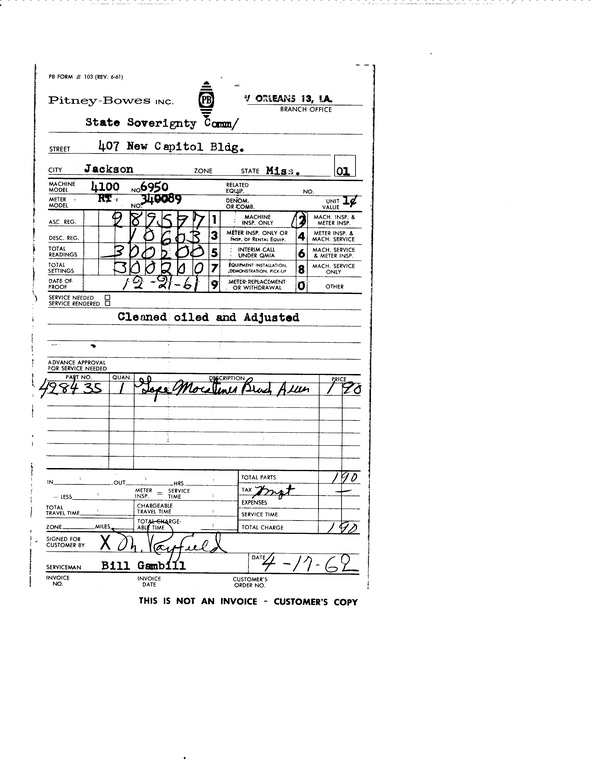 PB FORM # 103 (REV. 6-61)
Pitney-Bowes INC.
PB
ORLEANS 13, LA.
BRANCH OFFICE
State Soverignty Comm/
STREET 407 New Capitol Bldg.
CITY Jackson ZONE STATE Miss. 01
MACHINE MODEL 4100 NO. 6950 RELATED EQUIP. NO.
METER MODEL RT NO. 340089 DENOM. OR COMB. UNIT VALUE 1¢
ASC. REG. 989577 1 MACHINE INSP. ONLY 2 MACH. INSP. & METER INSP.
DESC. REG. 10603 3 METER INSP. ONLY OR INSP. OF RENTAL EQUIP. 4 METER INSP. & MACH. SERVICE
TOTAL READINGS 300200 5 INTERIM CALL UNDER QMIA 6 MACH. SERVICE & METER INSP.
TOTAL SETTINGS 300200 7 EQUIPMENT INSTALLATION, DEMONSTRATION, PICK UP 8 MACH. SERVICE ONLY
DATE OF PROOF 12-21-61 9 METER REPLACEMENT OR WITHDRAWAL 0 OTHER
SERVICE NEEDED
SERVICE RENDERED
Cleaned oiled and Adjusted
ADVANCE APPROVAL
FOR SERVICE NEEDED
PART NO. QUAN. DESCRIPTION PRICE
498435 1 Tape Brush 1 90
IN OUT HRS TOTAL PARTS 1 90
— LESS METER INSP. = SERVICE TIME TAX —
TOTAL TRAVEL TIME CHARGEABLE TRAVEL TIME EXPENSES
SERVICE TIME
ZONE MILES TOTAL CHARGE-ABLE TIME TOTAL CHARGE 1 90
SIGNED FOR CUSTOMER BY X M. Rayfield
SERVICEMAN Bill Gambill DATE 4-17-62
INVOICE NO. INVOICE DATE CUSTOMER'S ORDER NO.
THIS IS NOT AN INVOICE - CUSTOMER'S COPY